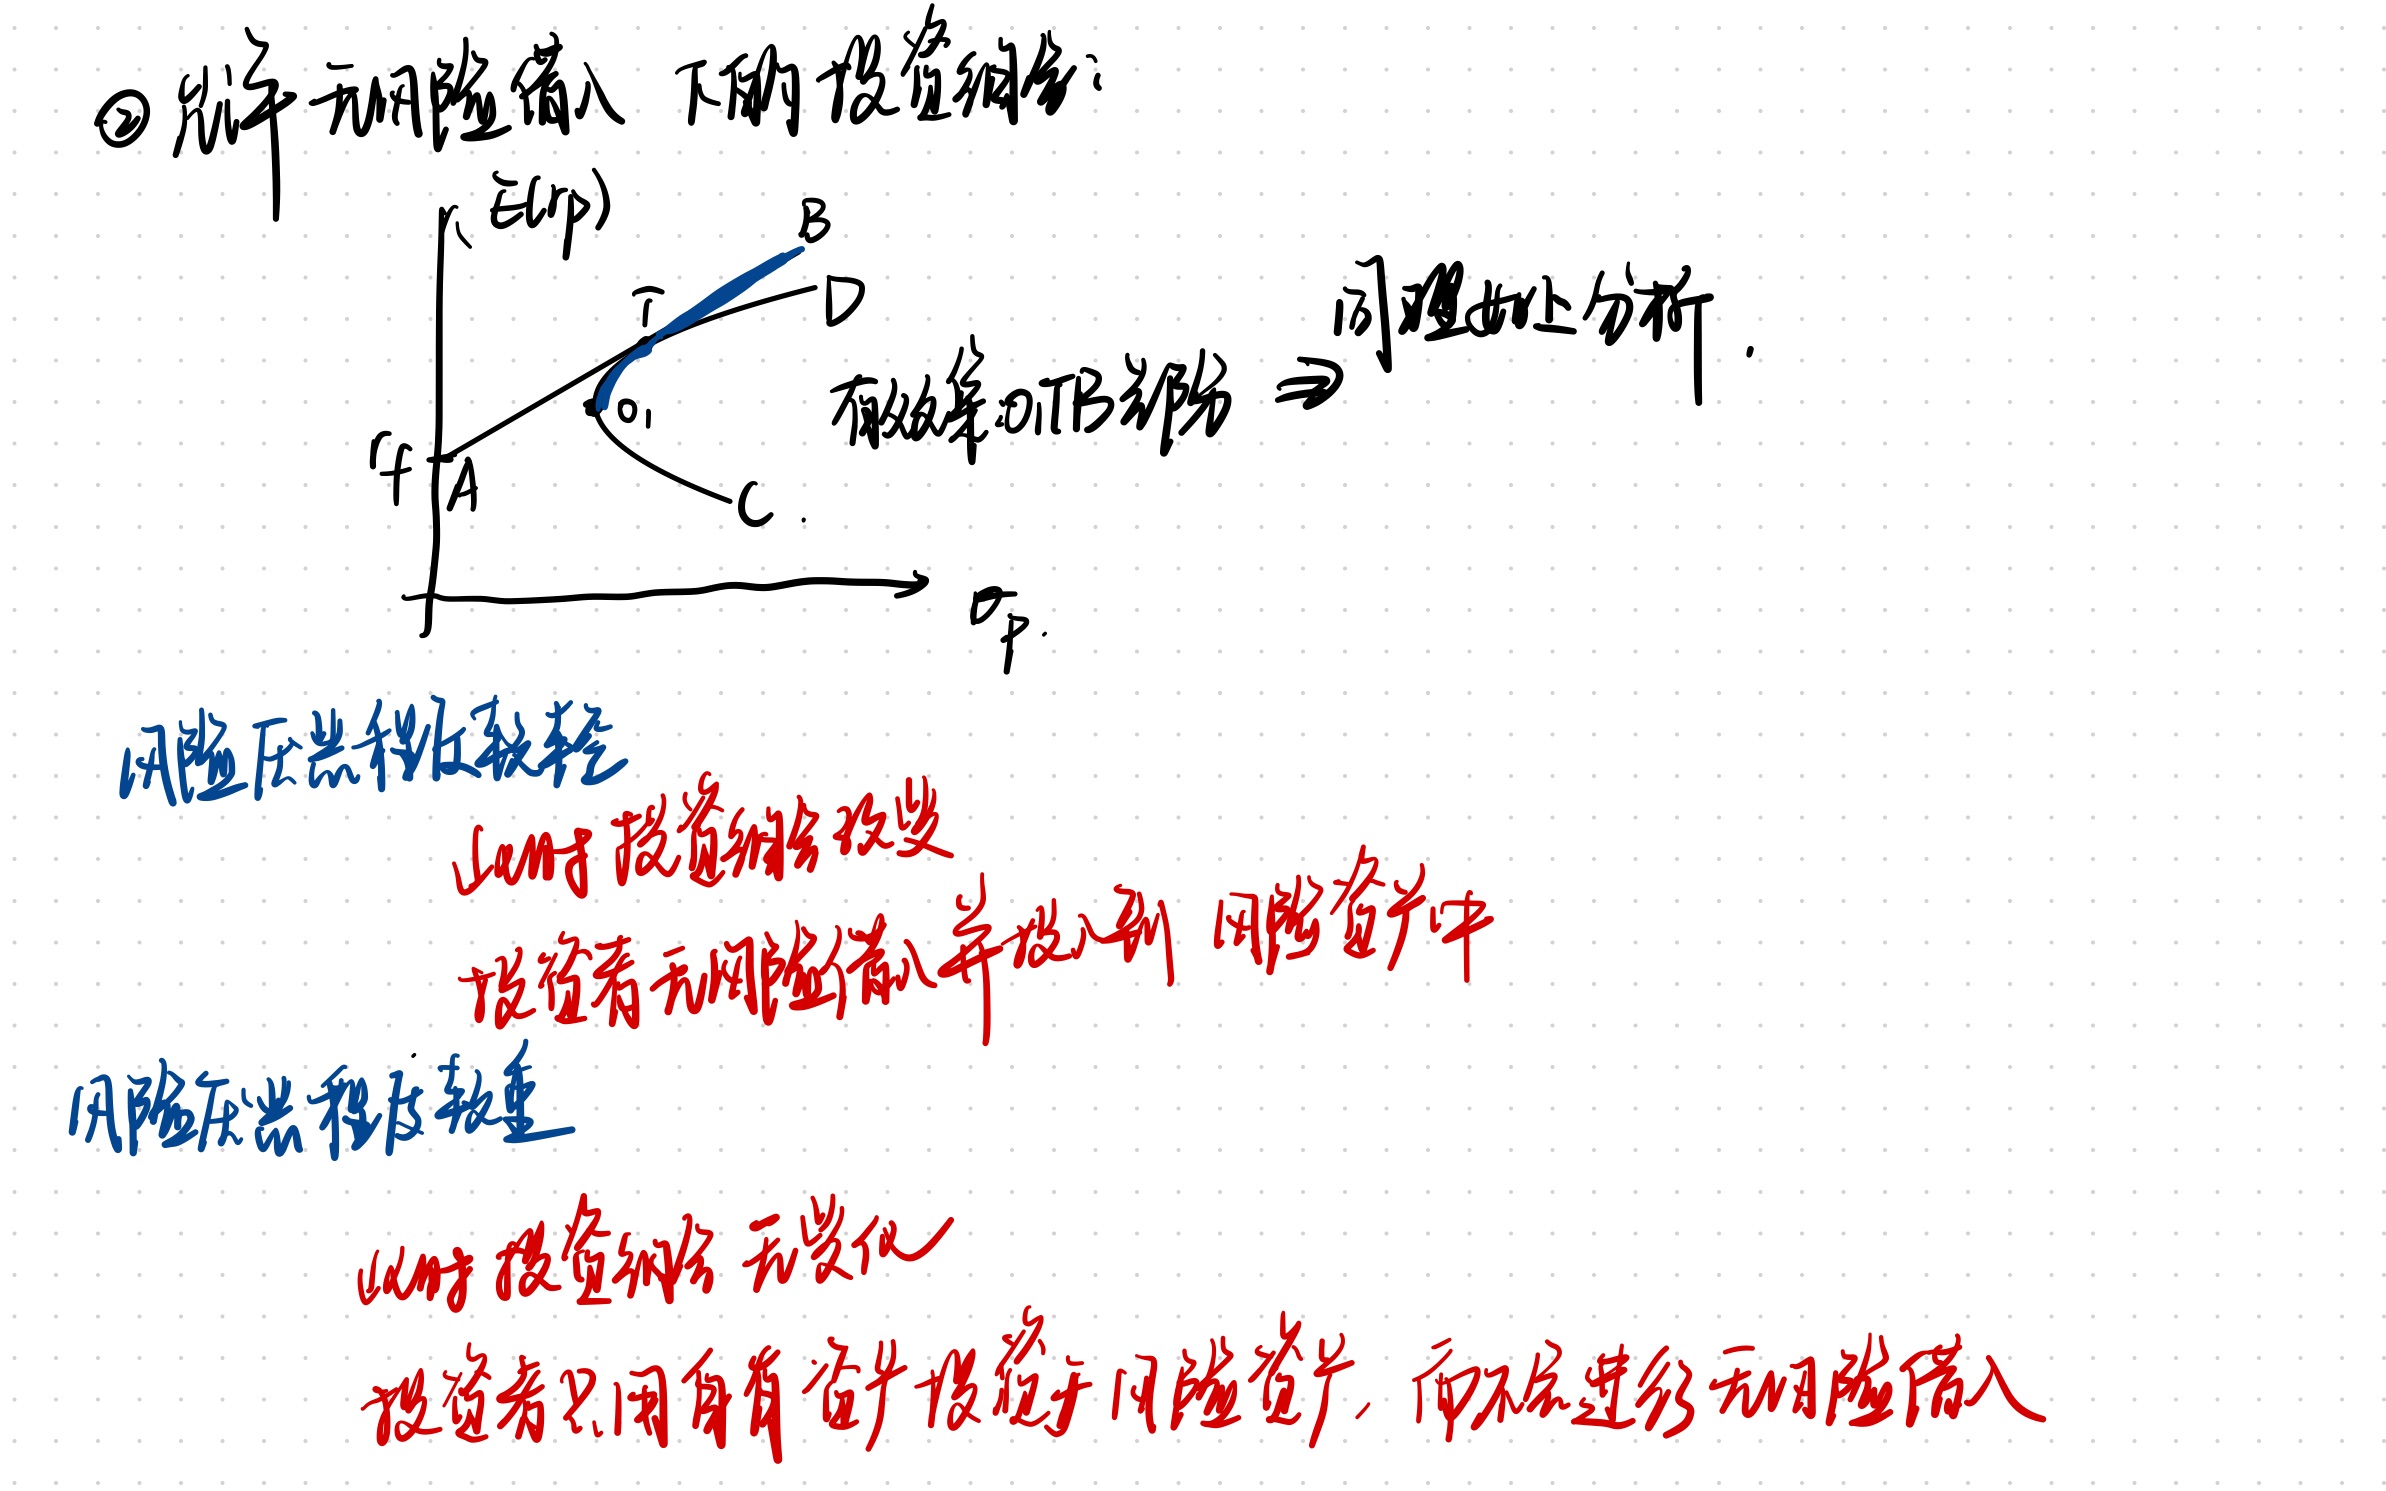 ② 允许无风险借入下的投资组合:
E(rp)
B
T
D
O1
rf
A
C
σp
有效集:O1TB 曲线 ⇒ 同理如上分析.
风险厌恶程度较轻
此时投资组合改变
投资者无风险借入并投入到风险资产中
风险厌恶程度较重
此时投资组合无变化
投资者只用自有资产投资于风险资产,而不会进行无风险借入